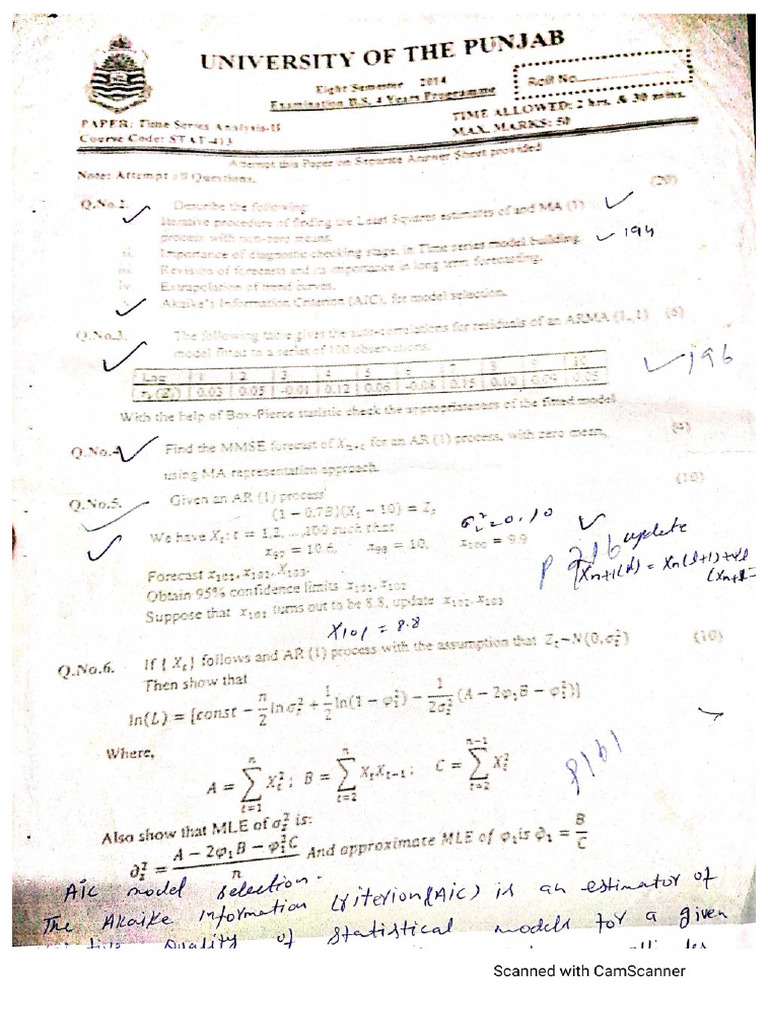 UNIVERSITY OF THE PUNJAB
Eight Semester 2014
Examination B.S. 4 Years Programme
Roll No.
PAPER: Time Series Analysis-II
Course Code: STAT-413
TIME ALLOWED: 2 hrs. & 30 mins.
MAX. MARKS: 50
Attempt this Paper on Separate Answer Sheet provided
Note: Attempt all Questions.
Q.No.2. Describe the following: (20)
Iterative procedure of finding the Least Squares estimates of and MA (1)
process with non-zero
ii. Importance of diagnostic checking stage, in Time series model building. 194
iii. Revision of forecasts and its importance in long term forecasting.
iv. Extrapolation of trend curves.
Akaike's Information Criterion (AIC), for model selection.
Q.No.3. The following table gives the auto-correlations for residuals of an ARMA (1, 1) (6)
model fitted to a series of 100 observations. 196
Lag 1 2 3 4 5 6 7 8 9 10
0.03 0.05 -0.01 0.12 0.06 -0.08 0.15 0.10 0.09
With the help of Box-Pierce statistic check the appropriateness of the fitted model
Q.No.4 Find the MMSE forecast of for an AR (1) process, with zero mean, (4)
using MA representation approach.
Q.No.5. Given an AR (1) process (10)
(1 − 0.7B)(Xₜ − 10) = Zₜ
We have Xₜ: t = 1,2, ...,100 such that σz² = 0.10
x₉₉ = 10, x₁₀₀ = 9.9
update
Forecast x₁₀₁, x₁₀₂, x₁₀₃.
Obtain 95% confidence limits x₁₀₁, x₁₀₂
Suppose that x₁₀₁ turns out to be 8.8, update x₁₀₂, x₁₀₃
X₁₀₁ = 8.8
Q.No.6. If { Xₜ} follows and AR (1) process with the assumption that Zₜ~N(0, σz²) (10)
Then show that
ln(L) = [const − n/2 ln σz² + 1/2 ln(1 − φ₁²) − 1/2σz² (A − 2φ₁B − φ₁²)}]
Where,
A = ∑ₜ₌₁ⁿ Xₜ² ; B = ∑ₜ₌₂ⁿ XₜXₜ₋₁ ; C = ∑ₜ₌₂ⁿ⁻¹ Xₜ²
Also show that MLE of σz² is:
∂z² = A − 2φ₁B − φ₁²C / n And approximate MLE of φ₁ is ∂₁ = B / C
AIC model selection.
The Akaike Information Criterion (AIC) is an estimator of
Quality of Statistical models for a given
Scanned with CamScanner